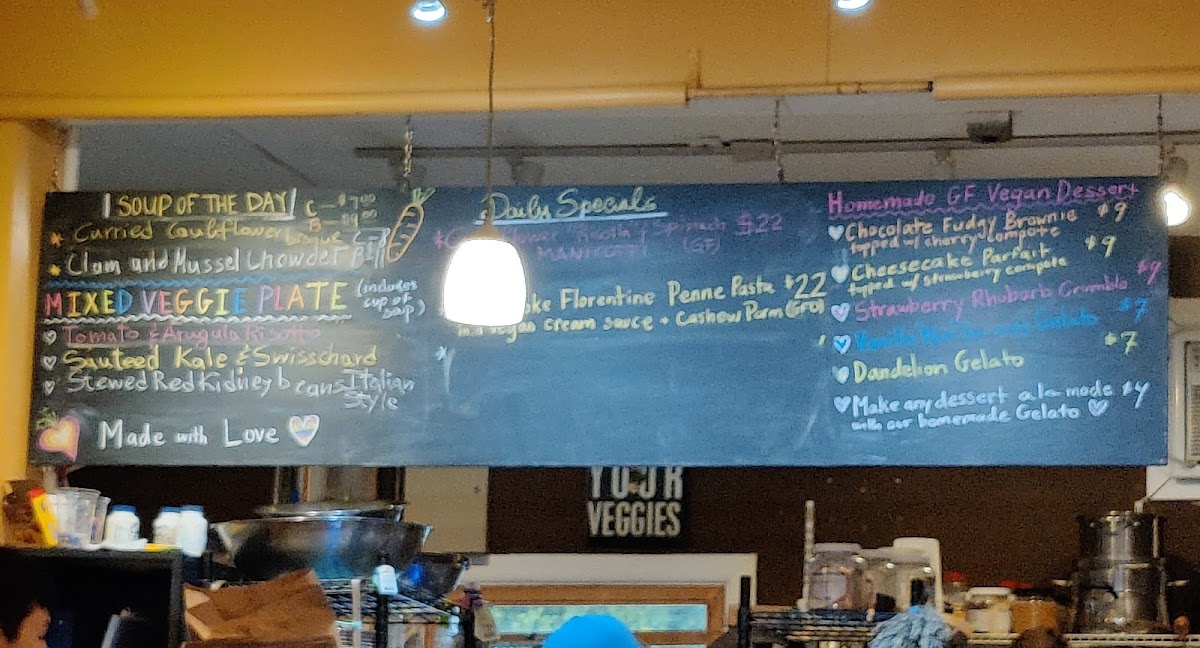 SOUP OF THE DAY
C - $7.00
B - $9.00
Curried Cauliflower bisque
Clam and Mussel Chowder
MIXED VEGGIE PLATE (includes
cup of
soup)
Tomato & Arugula Risotto
Sauteed Kale & Swisschard
Stewed Red Kidney beans Italian
Style
Made with Love
Daily Specials
Spinach $22
MANICOTTI (GF)
Florentine Penne Pasta $22
in a vegan cream sauce + Cashew Parm (GFO)
Homemade GF Vegan Dessert
Chocolate Fudgy Brownie $9
topped w/ cherry compote
Cheesecake Parfait $9
topped w/ strawberry compote
Strawberry Rhubarb Crumble $9
Gelato $7
Dandelion Gelato $7
Make any dessert a la mode $4
with our homemade Gelato
YOUR
VEGGIES